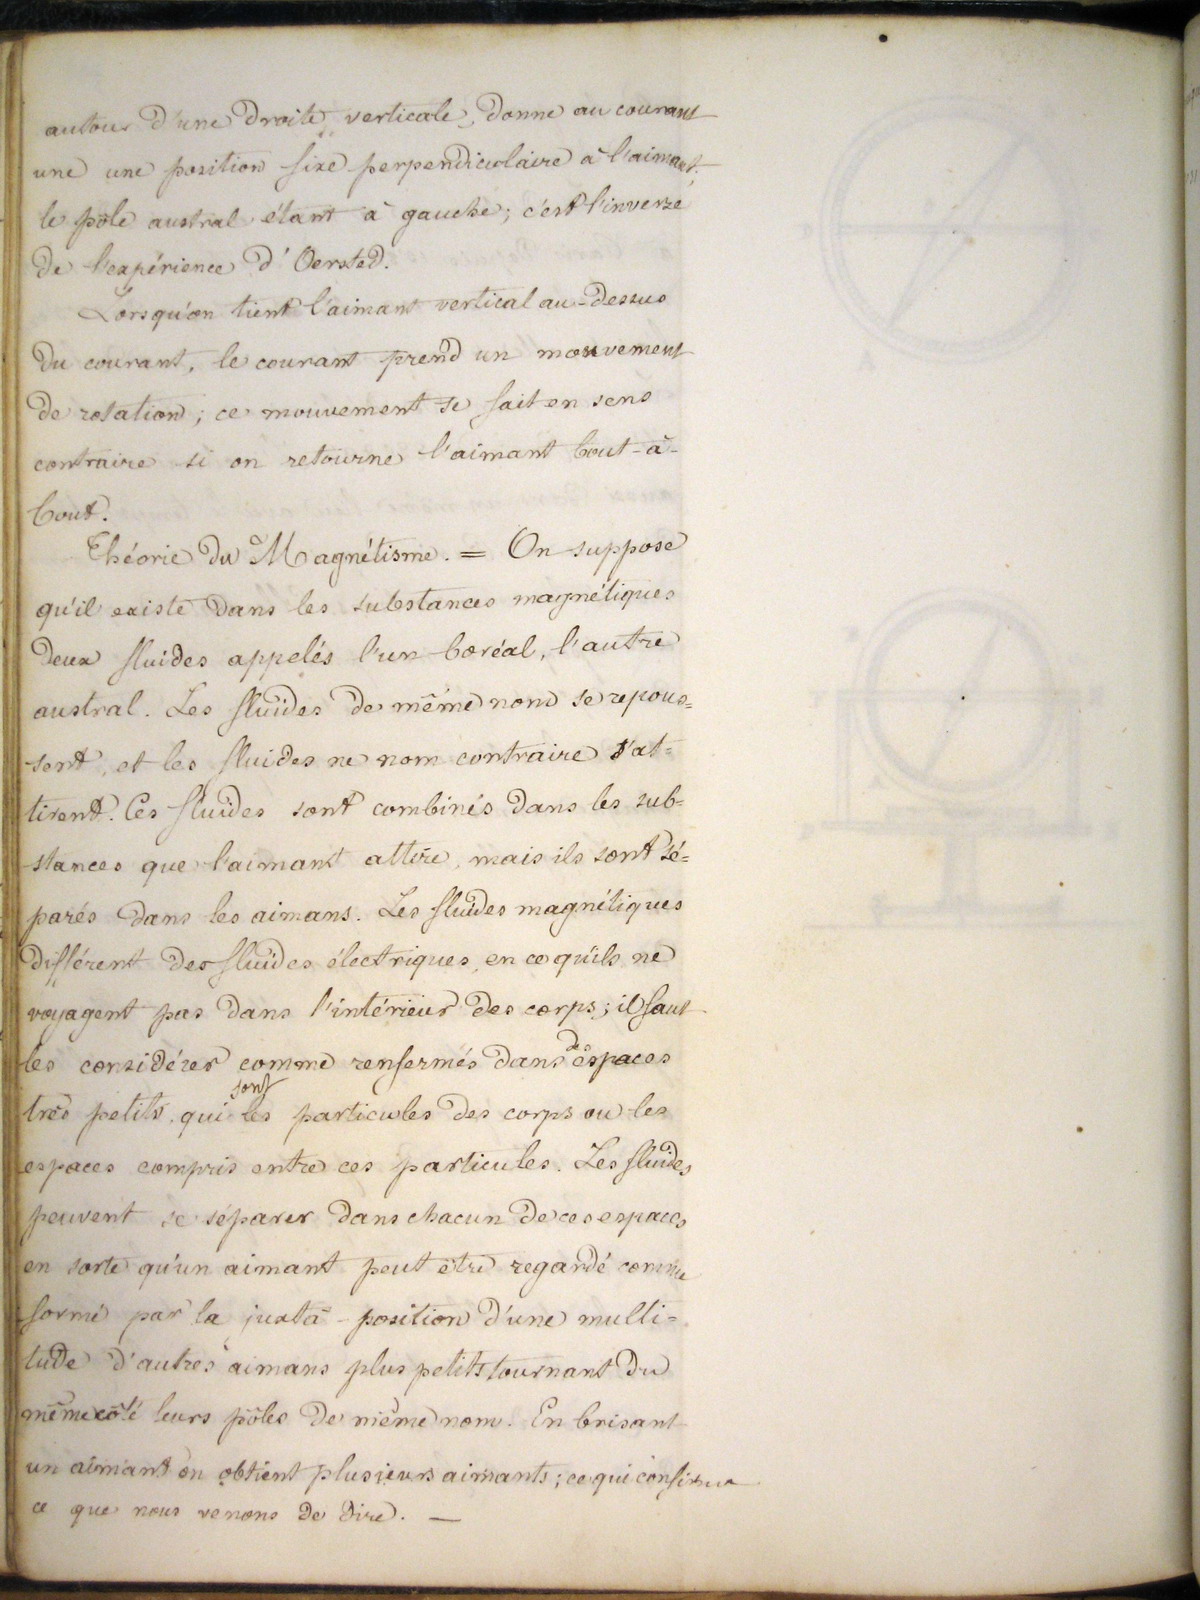 autour d'une droite verticale, donne au courant
une une position fixe perpendiculaire à l'aimant.
le pôle austral étant à gauche ; c'est l'inverse
de l'expérience d'Oersted.
Lorsqu'on tient l'aimant vertical au-dessus
du courant, le courant prend un mouvement
de rotation ; ce mouvement se fait en sens
contraire si on retourne l'aimant bout-à-
bout.
Théorie du Magnétisme. = On suppose
qu'il existe dans les substances magnétiques
deux fluides appelés l'un boréal, l'autre
austral. Les fluides de même nom se repous=
sent, et les fluides ne nom contraire s'at=
tirent. Ces fluides sont combinés dans les sub=
stances que l'aimant attire, mais ils sont sé=
parés dans les aimans. Les fluides magnétiques
différent des fluides électriques, en ce qu'ils ne
voyagent pas dans l'intérieur des corps ; il faut
des
les considérer comme renfermés dans espaces
sont
très petits, qui les particules des corps ou les
espaces compris entre ces particules. Les fluides
peuvent se séparer dans chacun de ces espaces
en sorte qu'un aimant peut être regardé comme
formé par la juxta-position d'une multi=
tude d'autres aimans plus petits tournant du
même côté leurs pôles de même nom. En brisant
un aimant on obtient plusieurs aimants ; ce qui confirme
ce que nous venons de dire. —